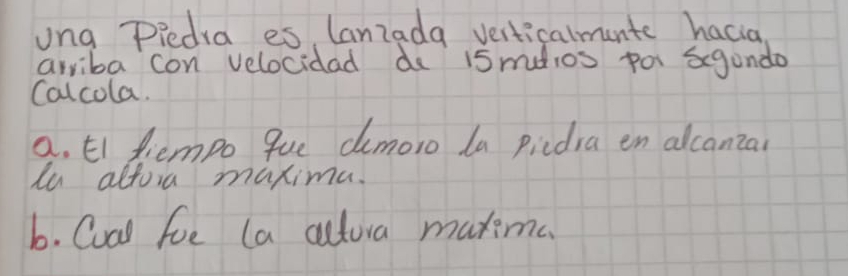 una Piedra es lanzada verticalmente hacia
arriba con velocidad de 15 metros por segundo
Calcola.
a. El tiempo que demoro la piedra en alcanzar
la altura maxima.
b. Cual fue la altura maxima